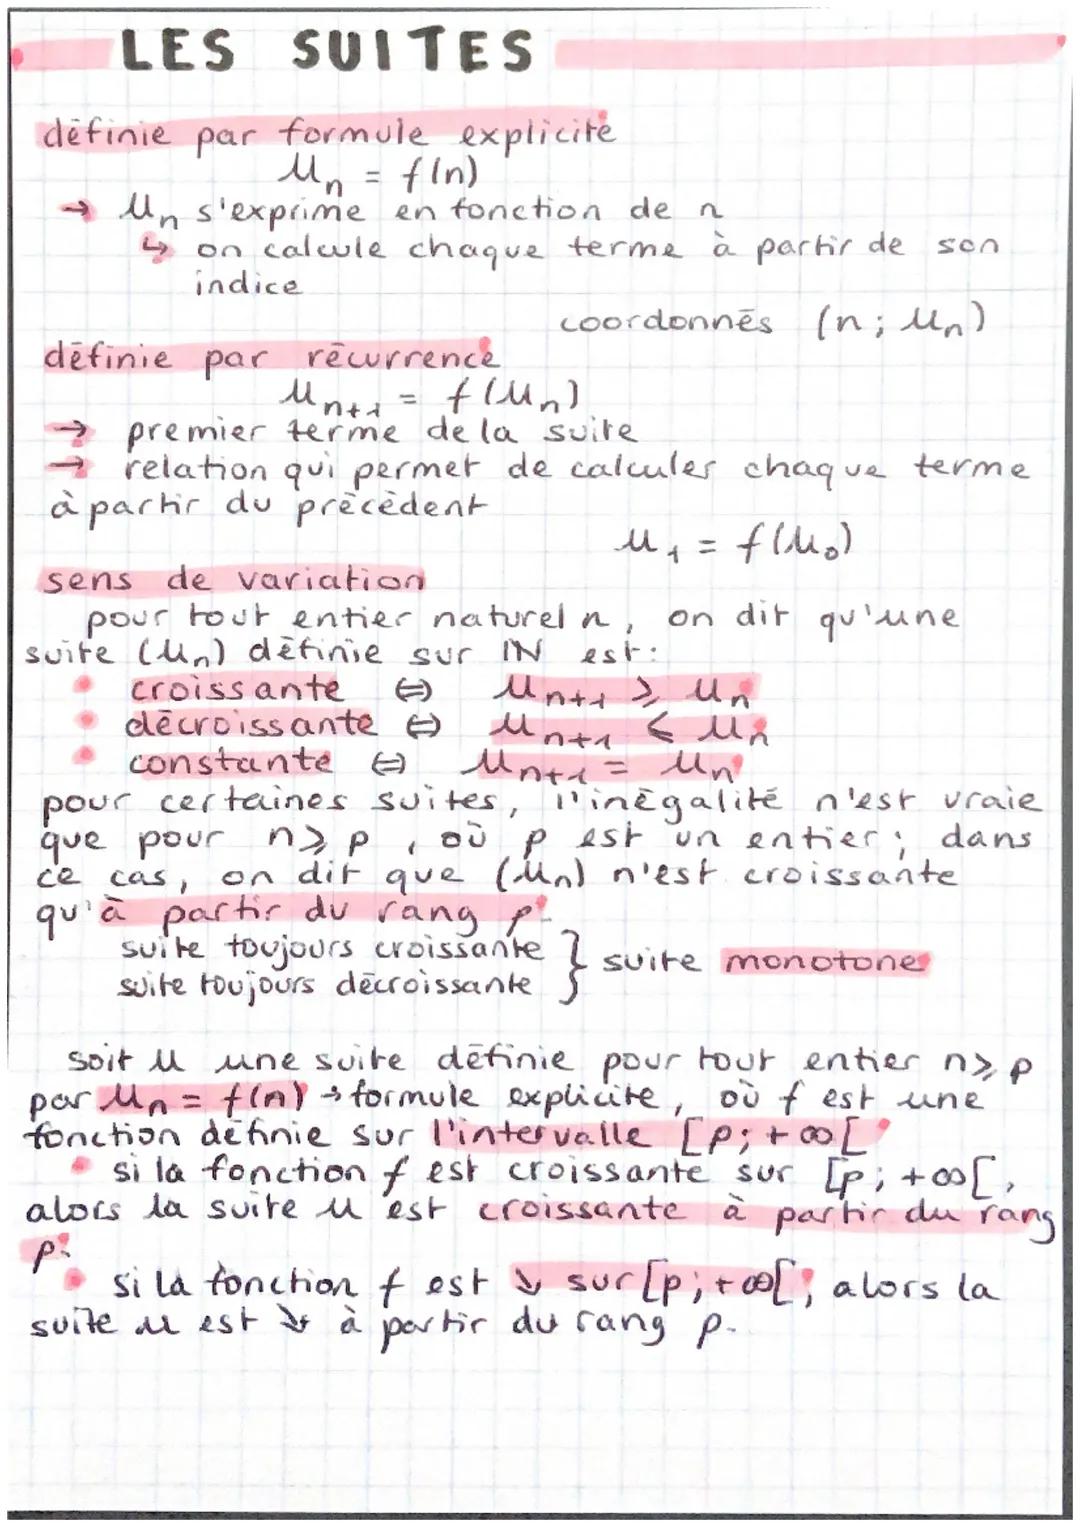 LES SUITES
définie par formule explicite
Un = f(n)
→ Un s'exprime en fonction de n
↳ on calcule chaque terme à partir de son
indice
coordonnés (n; Un)
définie par récurrence
Un+1 = f(Un)
→ premier terme de la suite
→ relation qui permet de calculer chaque terme
à partir du précédent
U1 = f(U0)
sens de variation
pour tout entier naturel n, on dit qu'une
suite (Un) définie sur IN est:
• croissante ⇔ Un+1 ⩾ Un
• décroissante ⇔ Un+1 ⩽ Un
• constante ⇔ Un+1 = Un
pour certaines suites, l'inégalité n'est vraie
que pour n⩾p, où p est un entier; dans
ce cas, on dit que (Un) n'est croissante
qu'à partir du rang p.
suite toujours croissante } suite monotone
suite toujours décroissante
soit U une suite définie pour tout entier n⩾p
par Un = f(n) → formule explicite, où f est une
fonction définie sur l'intervalle [p; +∞[
• si la fonction f est croissante sur [p; +∞[,
alors la suite U est croissante à partir du rang
p.
• si la fonction f est ↘ sur [p; +∞[, alors la
suite U est ↘ à partir du rang p.